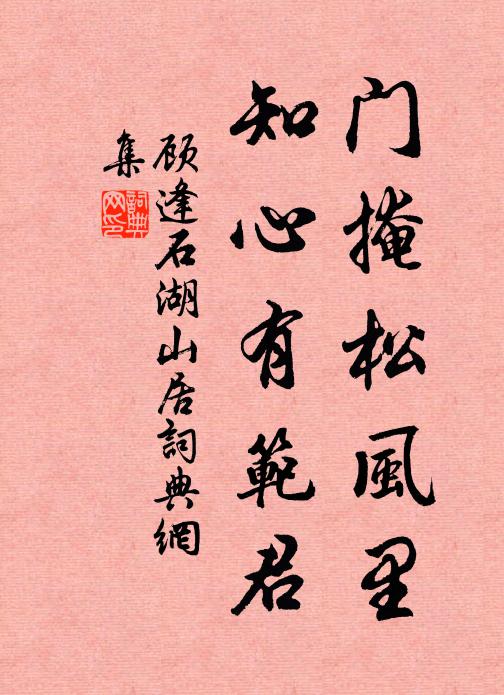 门掩松風里
知心有範君
顾逢石湖山居詞典網
集
詞典网印